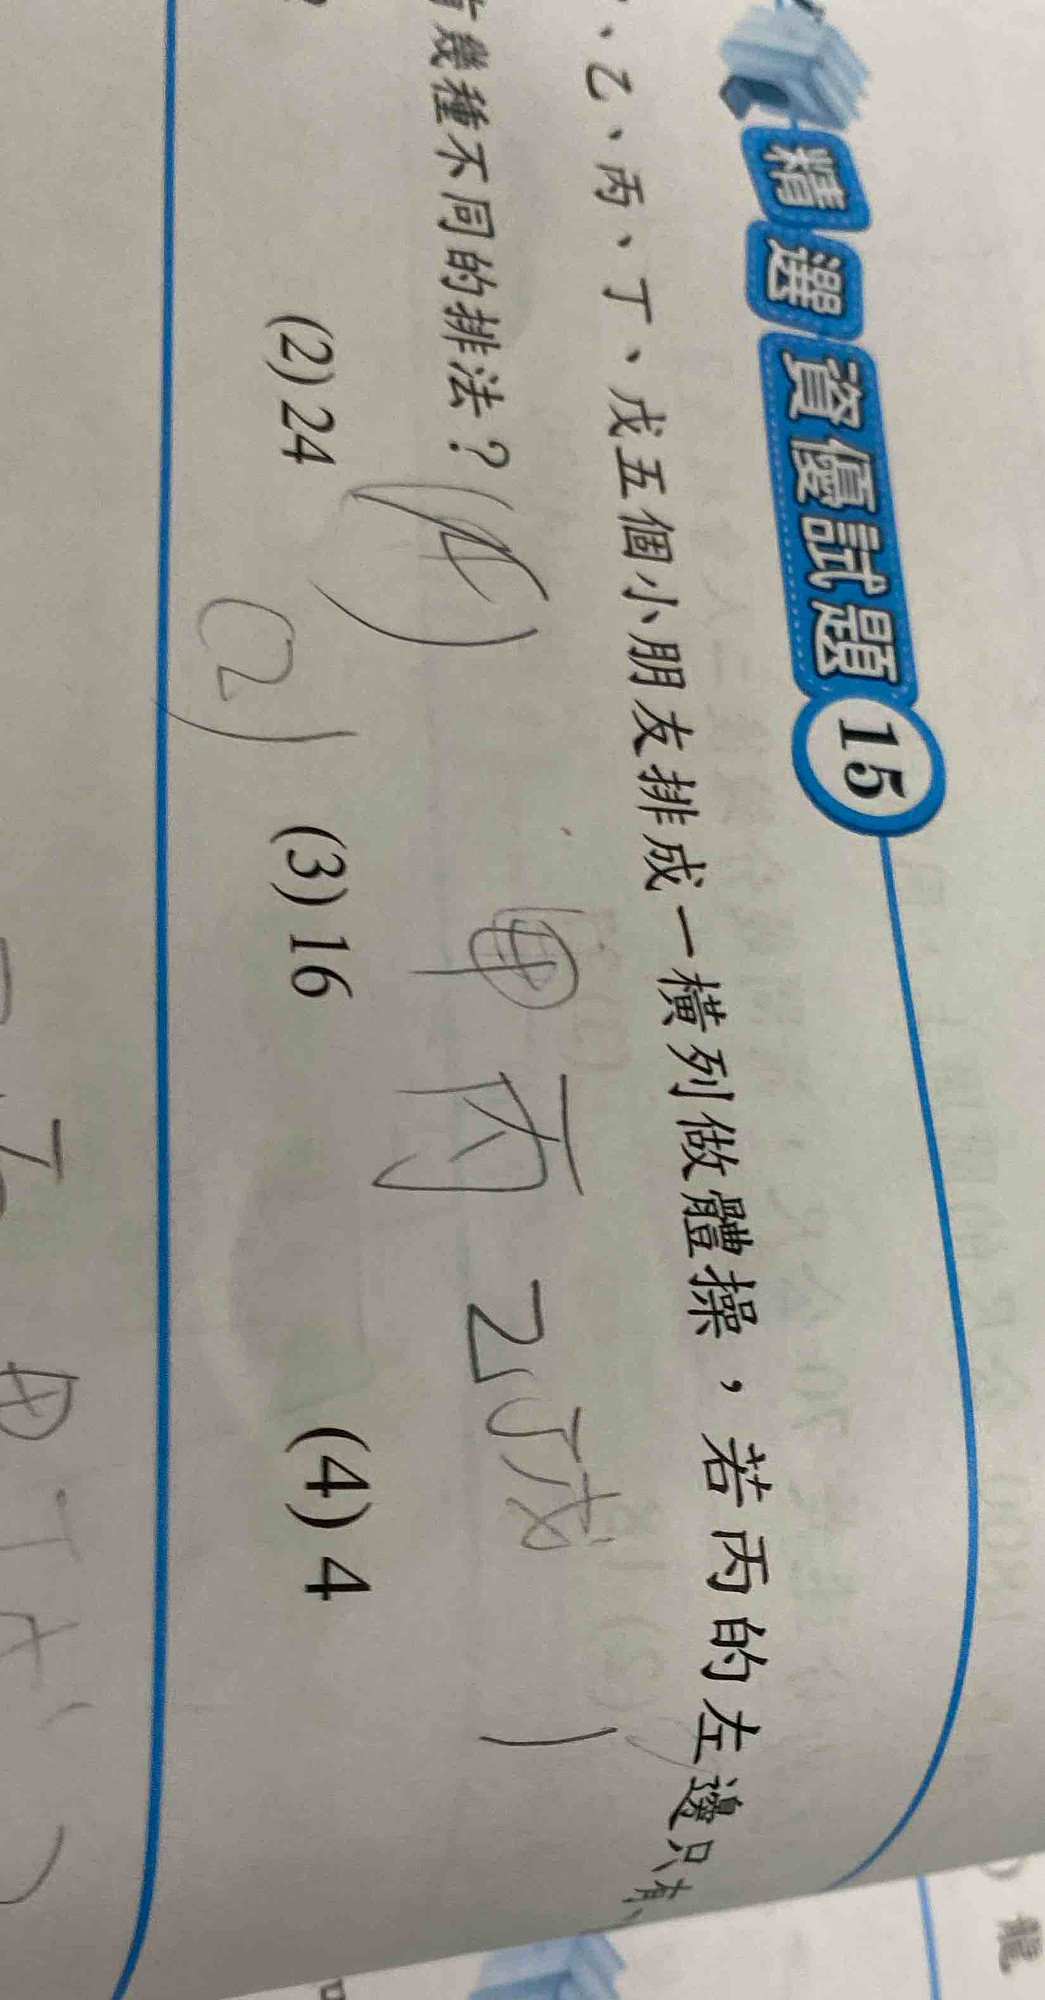 精選資優試題 15
、乙、丙、丁、戊五個小朋友排成一橫列做體操,若丙的左邊只有
幾種不同的排法?
(2) 24 (3) 16 (4) 4
甲 丙 乙丁戊
(2)
龍